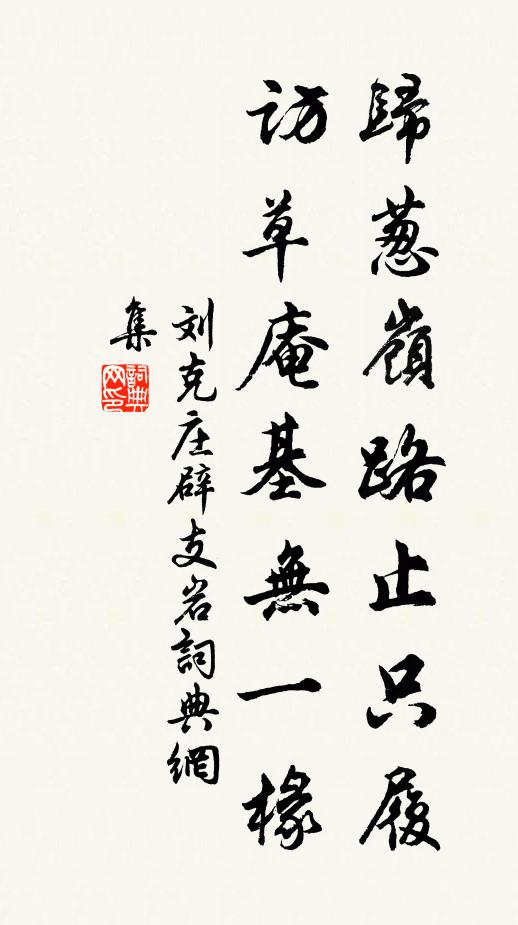 歸蔥嶺路止只履
訪草庵基無一椽
刘克庄辟支岩詞典網
集
詞典网印